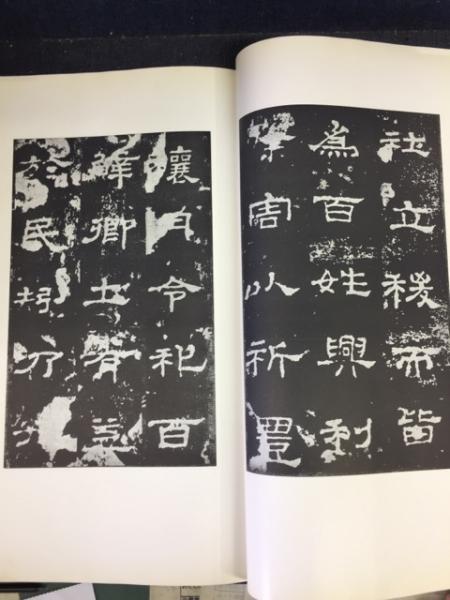 社立稷而皆
為百姓興利
除害以祈豐
穰月令祀百
辟卿士有益
於民矧乃孔